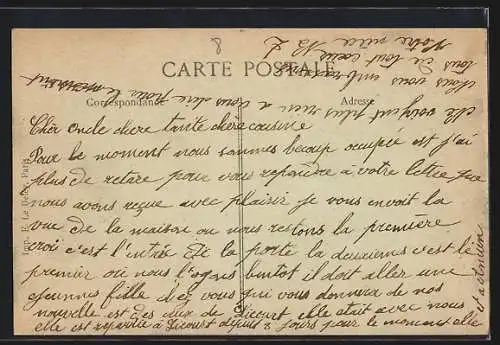 8
CARTE POSTALE
Correspondance
Adresse
Imp. E. Le Deley, Paris
Cher oncle chere tante chere cousine
Pour le moment nous sommes beaucp occupée est j'ai
plus de retare pour vous repondre à votre lettre que
nous avons reçue avec plaisir je vous envoit la
vue de la maison ou nous restons la première
croix c'est l'entrée de la porte la deuxieme c'est le
premier où nous l'ogons bientot il doit aller une
jeunnes fille d'ec vous qui vous donnera de nos
nouvelle est des deux de Dicourt elle etait avec nous
elle est repartie à Dicourt depuit 8 jours pour le moment elle
voyent plus rien a vous dire pour le moment
nous vous embrassons
tous de tout cœur
Votre nièce